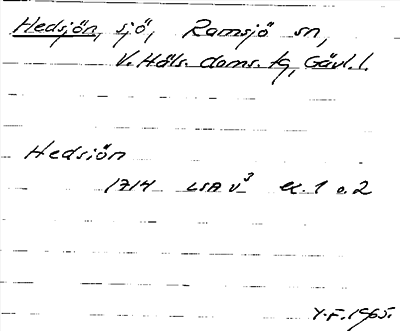 Hedsjön, sjö, Ramsjö sn,
V. Häls. doms. tg, Gävl. l.
Hedsiön
1714 LSA V³ ex. 1 o. 2
Y.F. 1965.